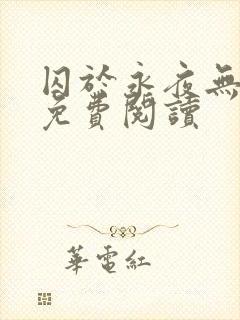 囚於永夜無
免費閱讀
華電紅